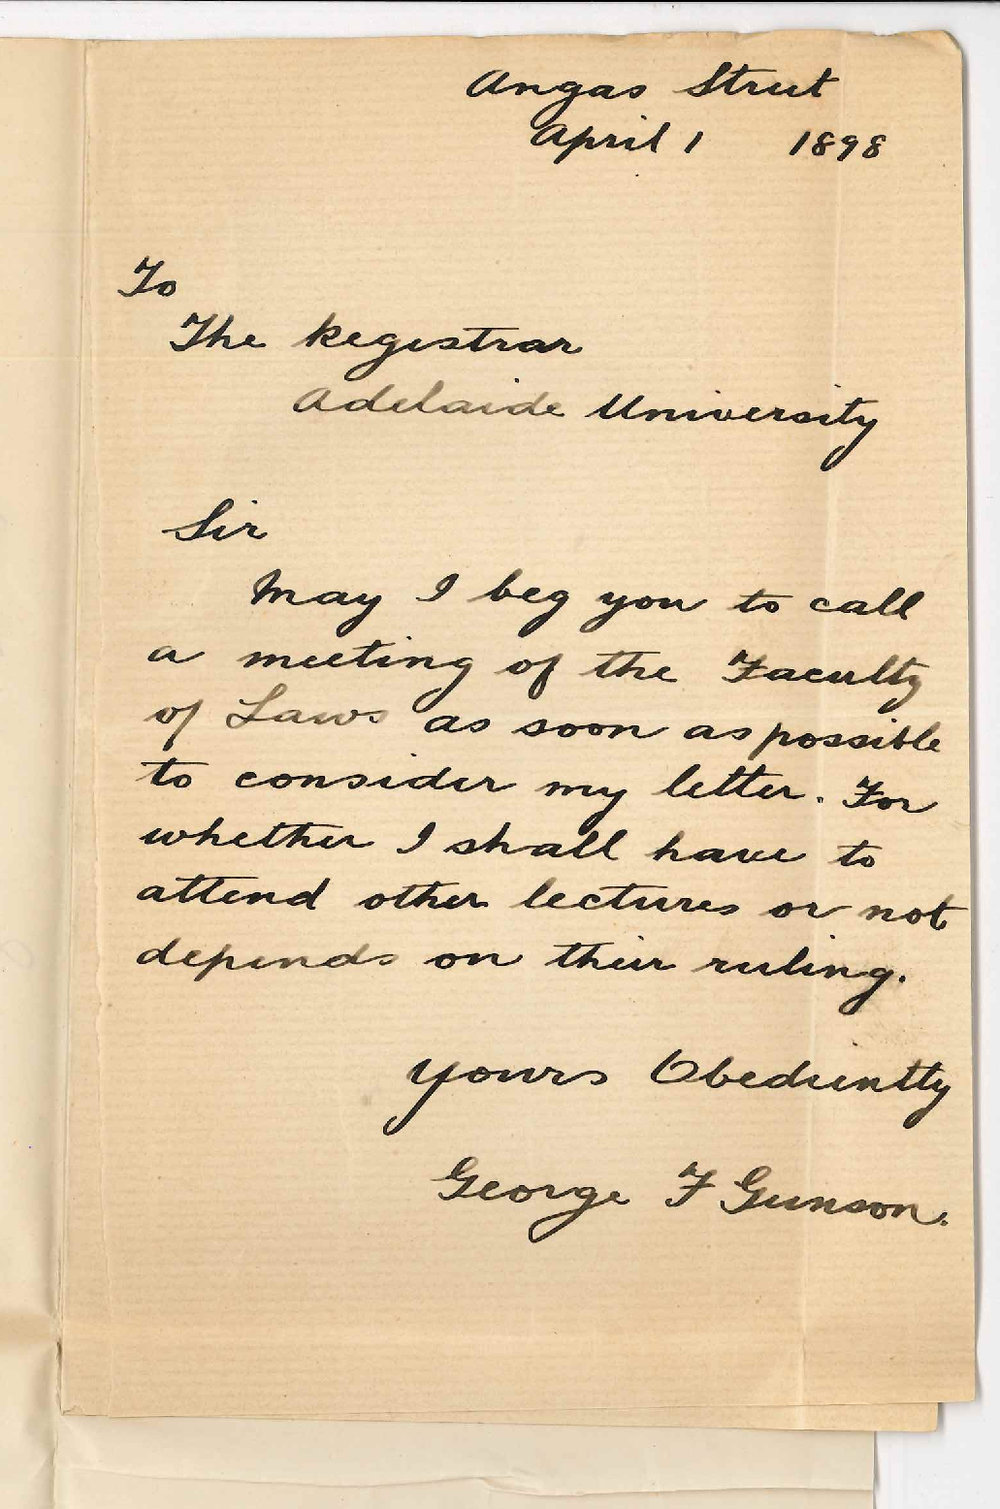 Angas Street
April 1 1898
To
The Registrar
Adelaide University
Sir
May I beg you to call
a meeting of the Faculty
of Laws as soon as possible
to consider my letter. For
whether I shall have to
attend other lectures or not
depends on their ruling.
Yours Obediently
George F Gunson.